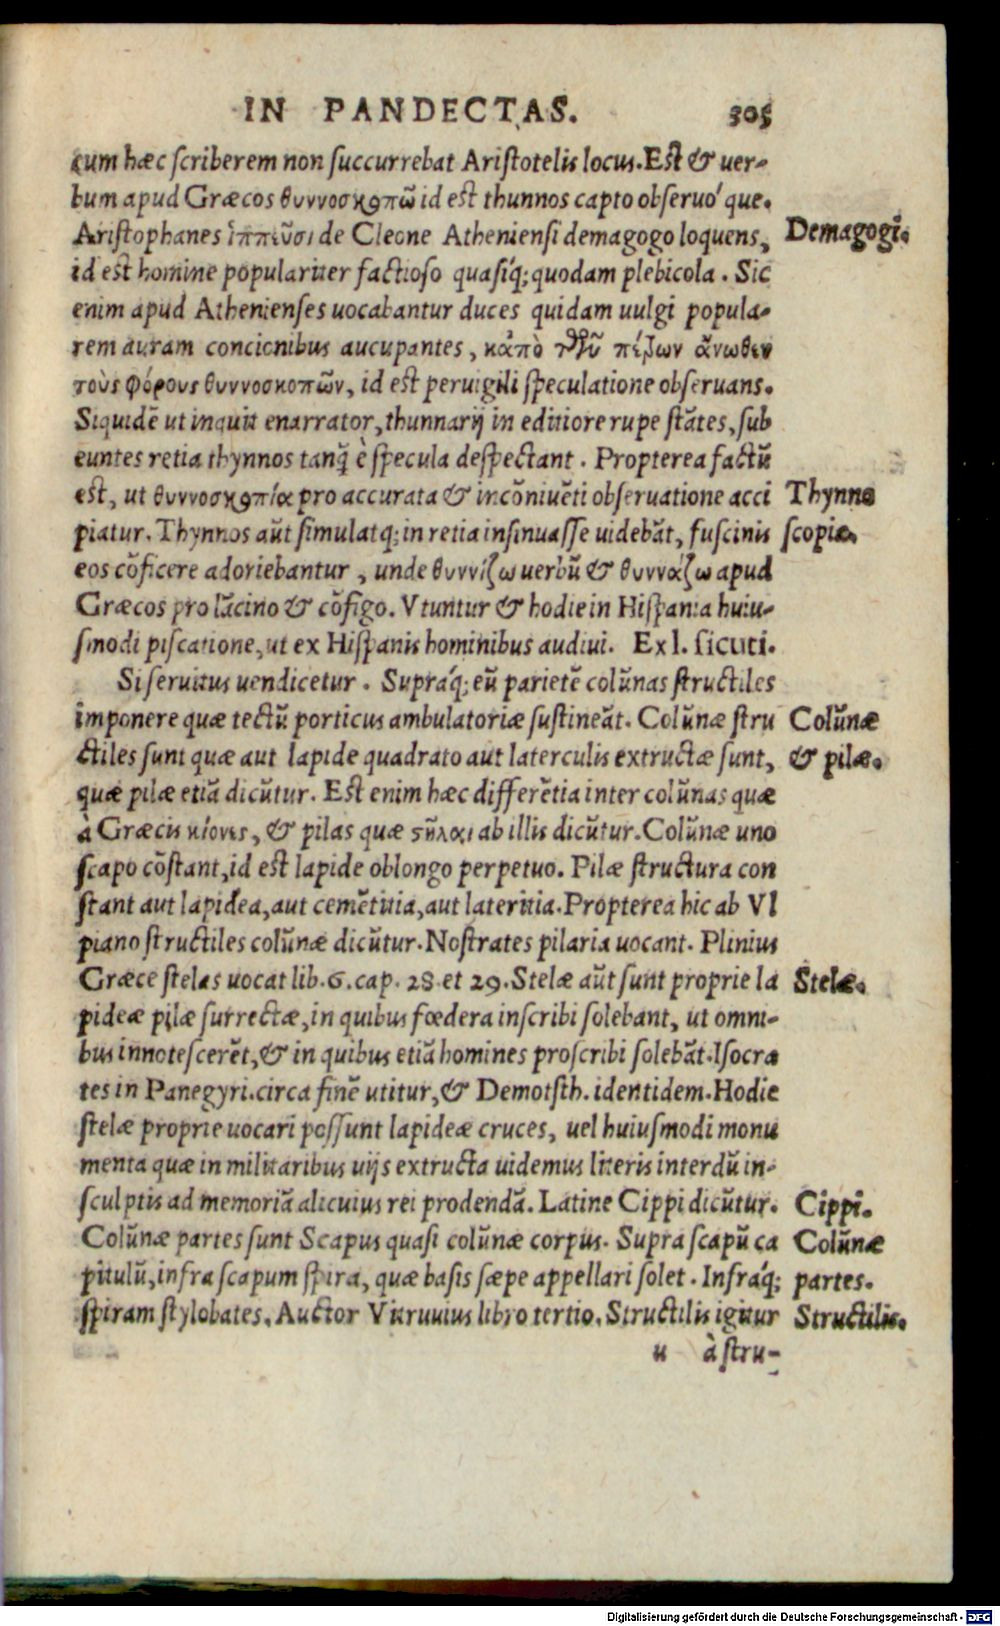 IN PANDECTAS. 305
cum hæc scriberem non succurrebat Aristotelis locus. Est & uer-
bum apud Græcos θυννοσκοπῶ id est thunnos capto obseruóque.
Aristophanes ἱππεῦσι de Cleone Atheniensi demagogo loquens, Demagogi.
id est homine populariter factioso quasiq́; quodam plebicola. Sic
enim apud Athenienses uocabantur duces quidam uulgi popula-
rem auram concionibus aucupantes, κἀπὸ τῶν πέτρων ἄνωθεν
τοὺς φόρους θυννοσκοπῶν, id est peruigili speculatione obseruans.
Siquidē ut inquit enarrator, thunnarij in editiore rupe stātes, sub
euntes retia thynnos tanq̄ è specula despectant. Propterea factū
est, ut θυννοσκοπία pro accurata & incōniuēti obseruatione acci Thynno
piatur. Thynnos aūt simulatq; in retia insinuasse uidebāt, fuscinis scopiæ.
eos cōficere adoriebantur, unde θυννίζω uerbū & θυννάζω apud
Græcos pro lācino & cōfigo. Vtuntur & hodie in Hispania huiu-
smodi piscatione, ut ex Hispanis hominibus audiui. Ex l. sicuti.
Si seruitus uendicetur. Supráq; eū parietē colūnas structiles
imponere quæ tectū porticus ambulatoriæ sustineāt. Colūnæ stru Colūnæ
ctiles sunt quæ aut lapide quadrato aut laterculis extructæ sunt, & pilæ.
quæ pilæ etiā dicūtur. Est enim hæc differētia inter colūnas quæ
à Græcis κίονες, & pilas quæ στῆλαι ab illis dicūtur. Colūnæ uno
scapo cōstant, id est lapide oblongo perpetuo. Pilæ structura con
stant aut lapidea, aut cemētitia, aut lateritia. Propterea hic ab Vl
piano structiles colūnæ dicūtur. Nostrates pilaria uocant. Plinius
Græce stelas uocat lib. 6. cap. 28. et 29. Stelæ aūt sunt proprie la Stelæ.
pideæ pilæ surrectæ, in quibus fœdera inscribi solebant, ut omni-
bus innotescerēt, & in quibus etiā homines proscribi solebāt. Isocra
tes in Panegyri. circa finē utitur, & Demotsth. identidem. Hodie
stelæ proprie uocari possunt lapideæ cruces, uel huiusmodi monu
menta quæ in militaribus uijs extructa uidemus literis interdū in-
sculptis ad memoriā alicuius rei prodendā. Latine Cippi dicūtur. Cippi.
Colūnæ partes sunt Scapus quasi colūnæ corpus. Supra scapū ca Colūnæ
pitulū, infra scapum spira, quæ basis sæpe appellari solet. Infráq; partes.
spiram stylobates. Auctor Vitruuius libro tertio. Structilis igitur Structilis.
u à stru-
Digitalisierung gefördert durch die Deutsche Forschungsgemeinschaft - DFG